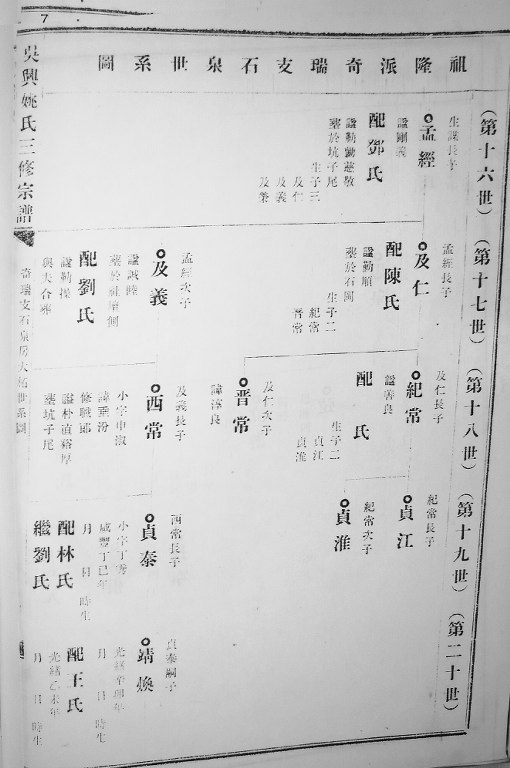 7
祖隆派奇瑞支石泉世系圖
吳興姚氏三修宗譜
奇瑞支石泉房大 世系圖
(第十六世)
生謀長子
孟經
諡剛義
配鄧氏
諡勤勤慈敬
塟於坑子尾
生子三
及仁
及義
及
(第十七世)
孟經長子
及仁
配陳氏
諡勤順
塟於石岡
生子二
紀常
晋常
孟經次子
及義
諡誠
塟於
配劉氏
諡勤操
與夫合
(第十八世)
及仁長子
紀常
諡善良
配 氏
生子二
貞江
貞淮
及仁次子
晋常
諄良
及義長子
酉常
小字申淑
諱 汾
修職郎
諡朴直 厚
塟坑子尾
(第十九世)
紀常長子
貞江
紀常次子
貞淮
酉常長子
貞泰
小字丁秀
咸豐丁巳年
月 日 時生
配林氏
繼劉氏
(第二十世)
貞泰嗣子
靖煥
光緒辛卯年
月 日 時生
配王氏
光緒 年
月 日 時生